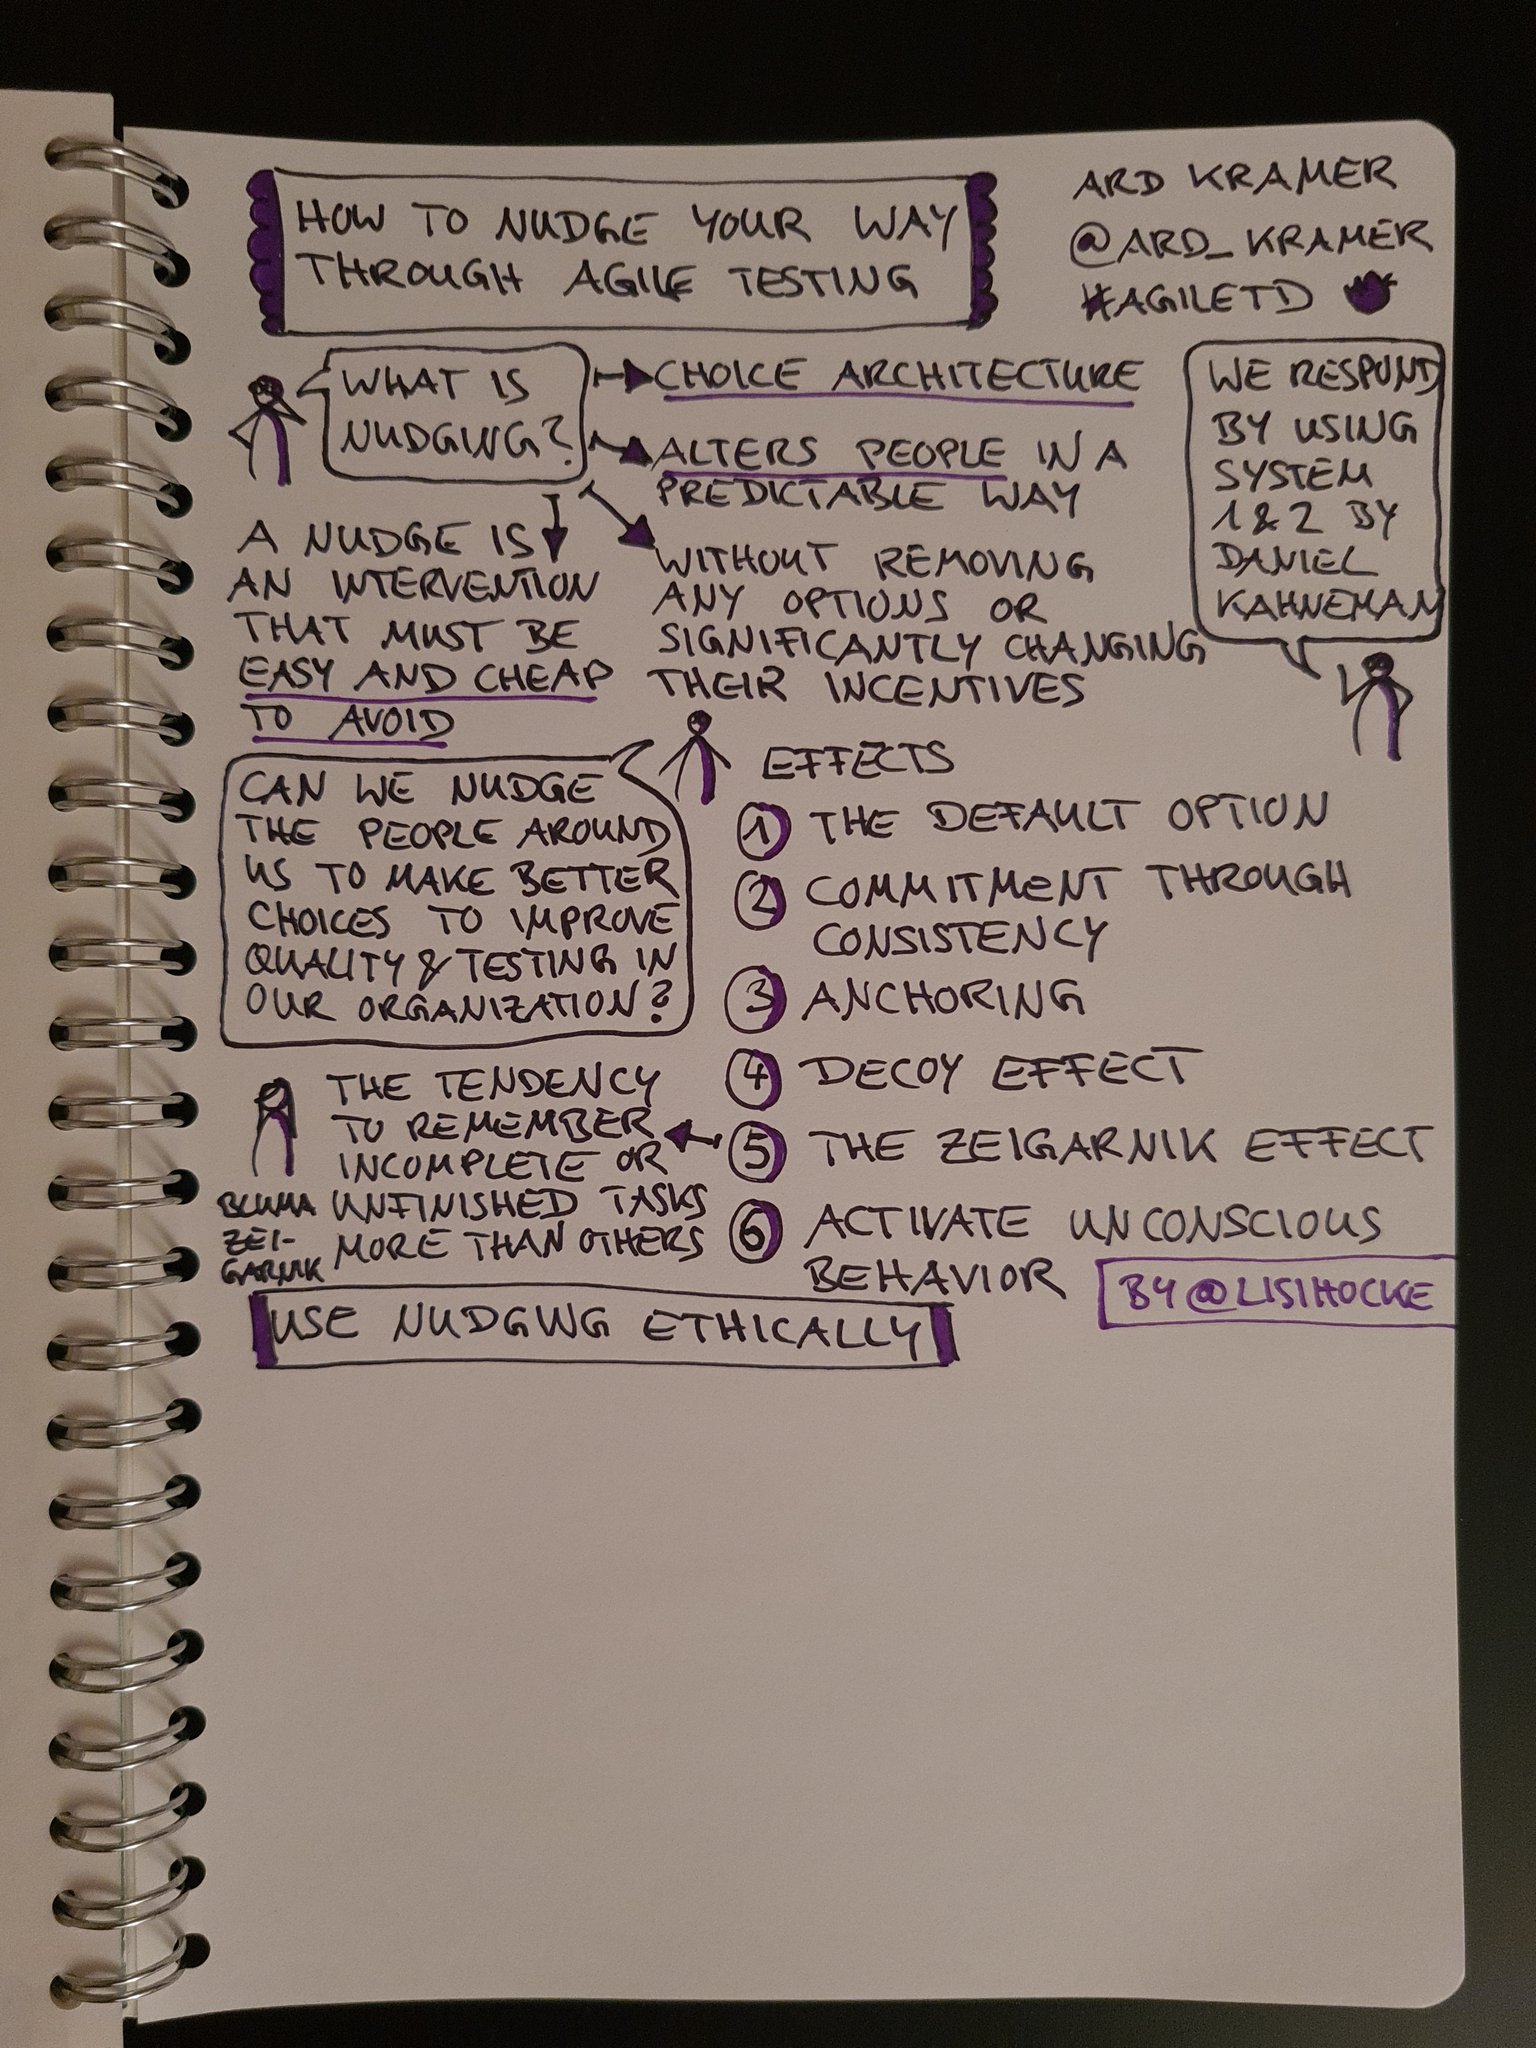 HOW TO NUDGE YOUR WAY
THROUGH AGILE TESTING
ARD KRAMER
@ARD_KRAMER
#AGILETD
WHAT IS
NUDGING?
CHOICE ARCHITECTURE
ALTERS PEOPLE IN A
PREDICTABLE WAY
WITHOUT REMOVING
ANY OPTIONS OR
SIGNIFICANTLY CHANGING
THEIR INCENTIVES
A NUDGE IS
AN INTERVENTION
THAT MUST BE
EASY AND CHEAP
TO AVOID
WE RESPOND
BY USING
SYSTEM
1 & 2 BY
DANIEL
KAHNEMAN
CAN WE NUDGE
THE PEOPLE AROUND
US TO MAKE BETTER
CHOICES TO IMPROVE
QUALITY & TESTING IN
OUR ORGANIZATION?
EFFECTS
1 THE DEFAULT OPTION
2 COMMITMENT THROUGH
CONSISTENCY
3 ANCHORING
4 DECOY EFFECT
5 THE ZEIGARNIK EFFECT
THE TENDENCY
TO REMEMBER
INCOMPLETE OR
UNFINISHED TASKS
MORE THAN OTHERS
BLUMA
ZEI-
GARNIK
6 ACTIVATE UNCONSCIOUS
BEHAVIOR
BY @LISIHOCKE
USE NUDGING ETHICALLY